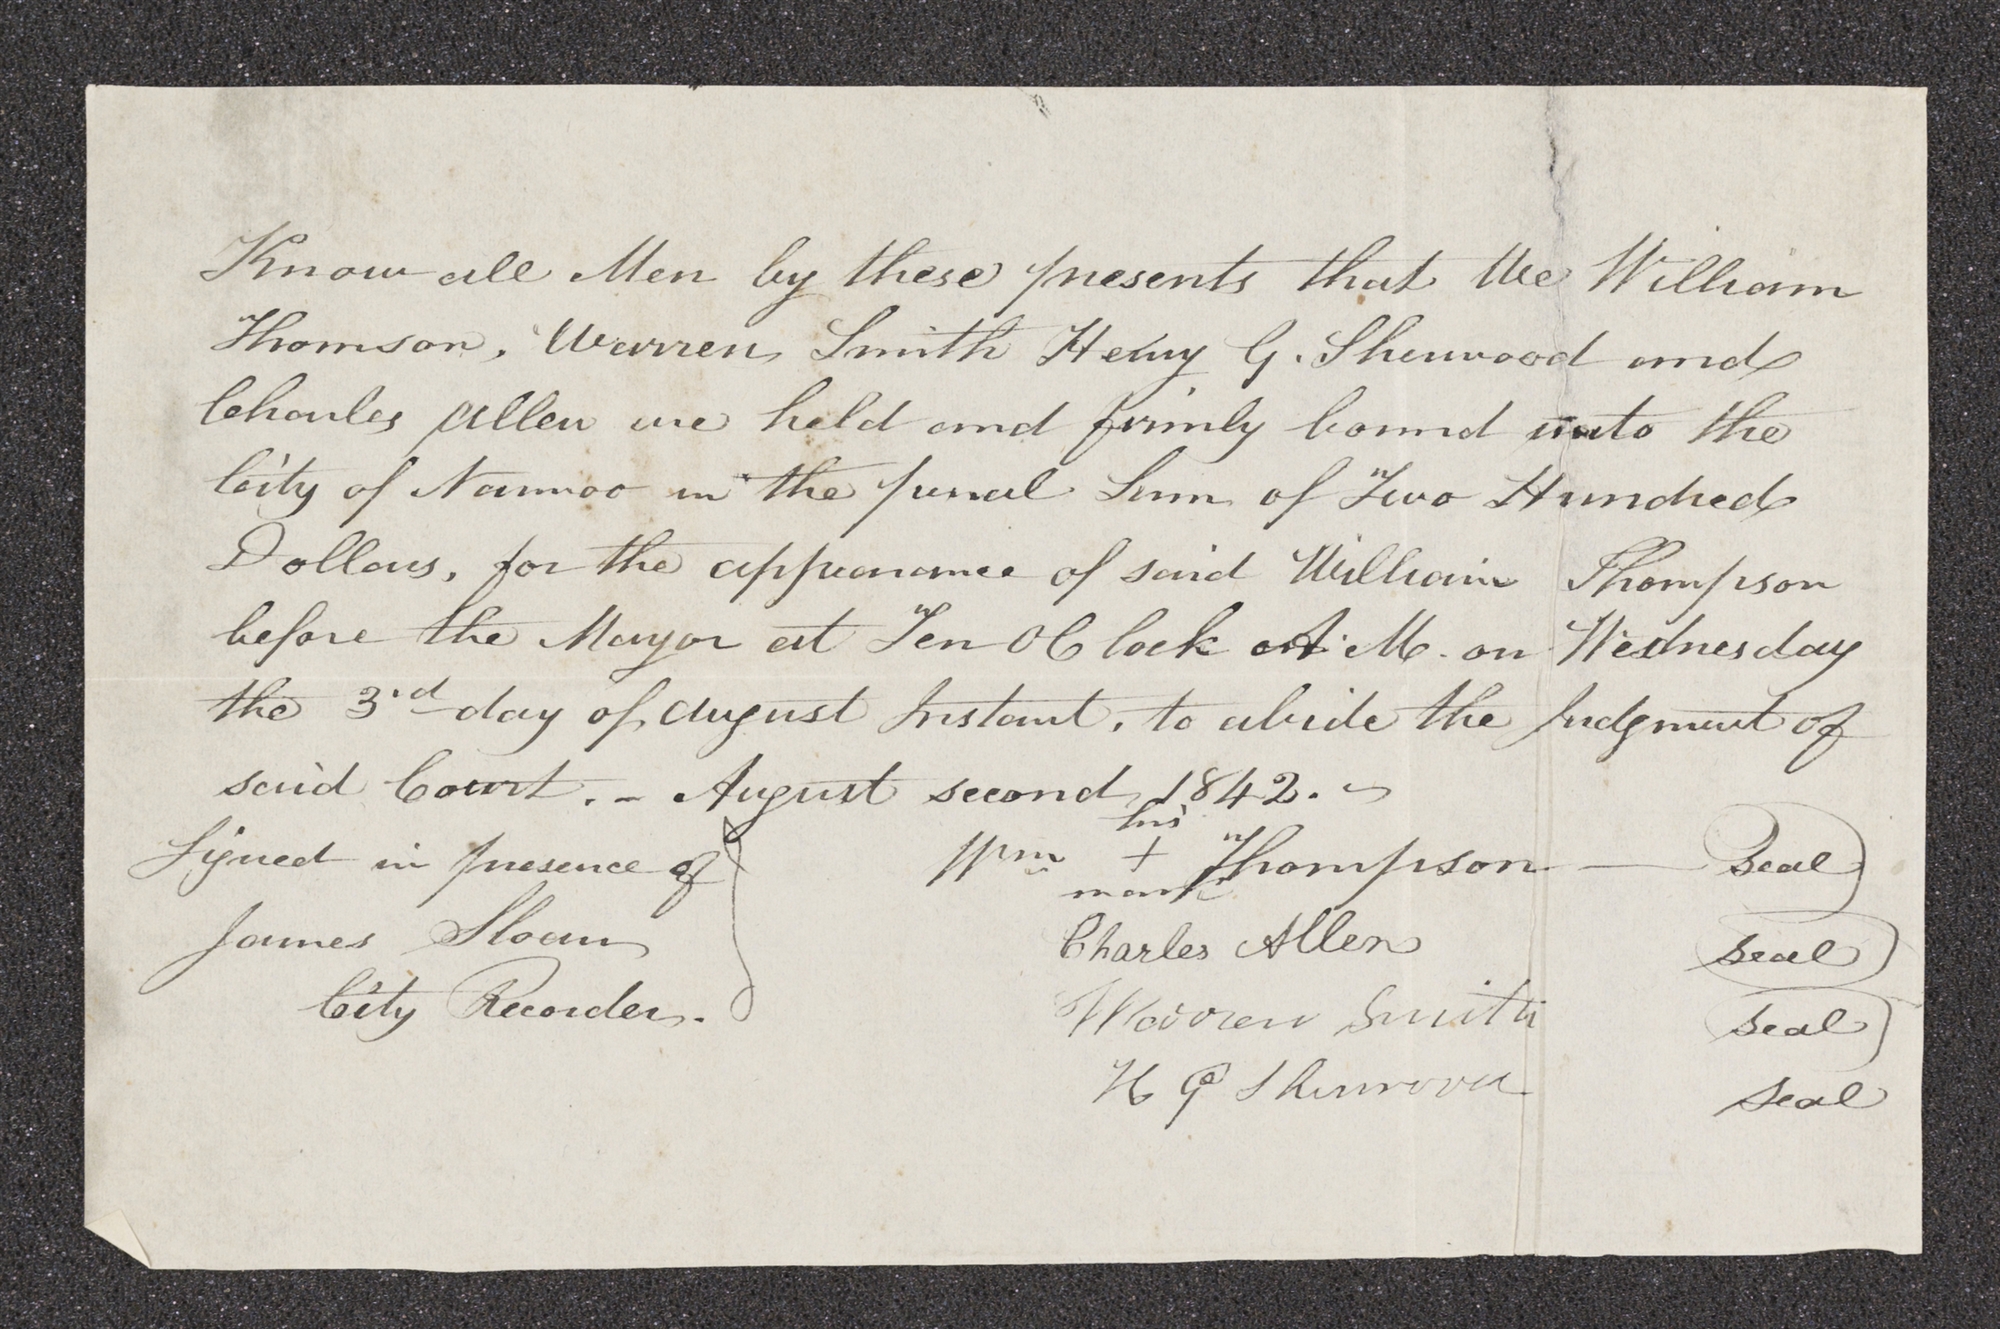 Know all Men by these presents that We William
Thomson, Warren Smith Henry G. Sherwood and
Charles Allen are held and firmly bound unto the
City of Nauvoo in the penal Sum of Two Hundred
Dollars, for the appearance of said William Thompson
before the Mayor at Ten OClock A. M. on Wednesday
the 3rd day of August Instant, to abide the Judgment of
said Court. - August second, 1842.
his
Signed in presence of Wm + Thompson — Seal
mark
James Sloan Charles Allen Seal
City Recorder. Warren Smith Seal
H G Sherwood Seal